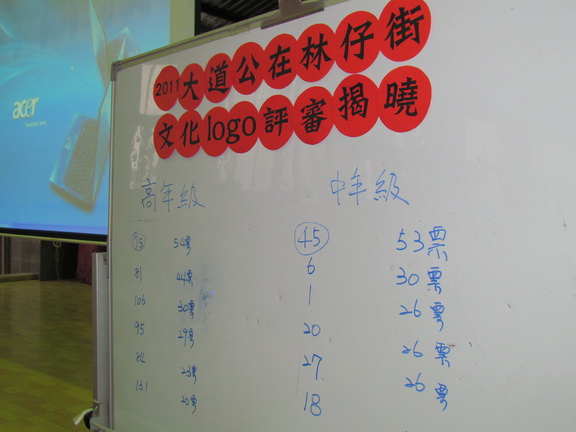 acer
2011大道公在林仔街
文化logo評審揭曉
高年級 中年級
54票 45 53票
81 44票 6 30票
106 30票 1 26票
95 29票 20 26票
27 26票
131 20票 18